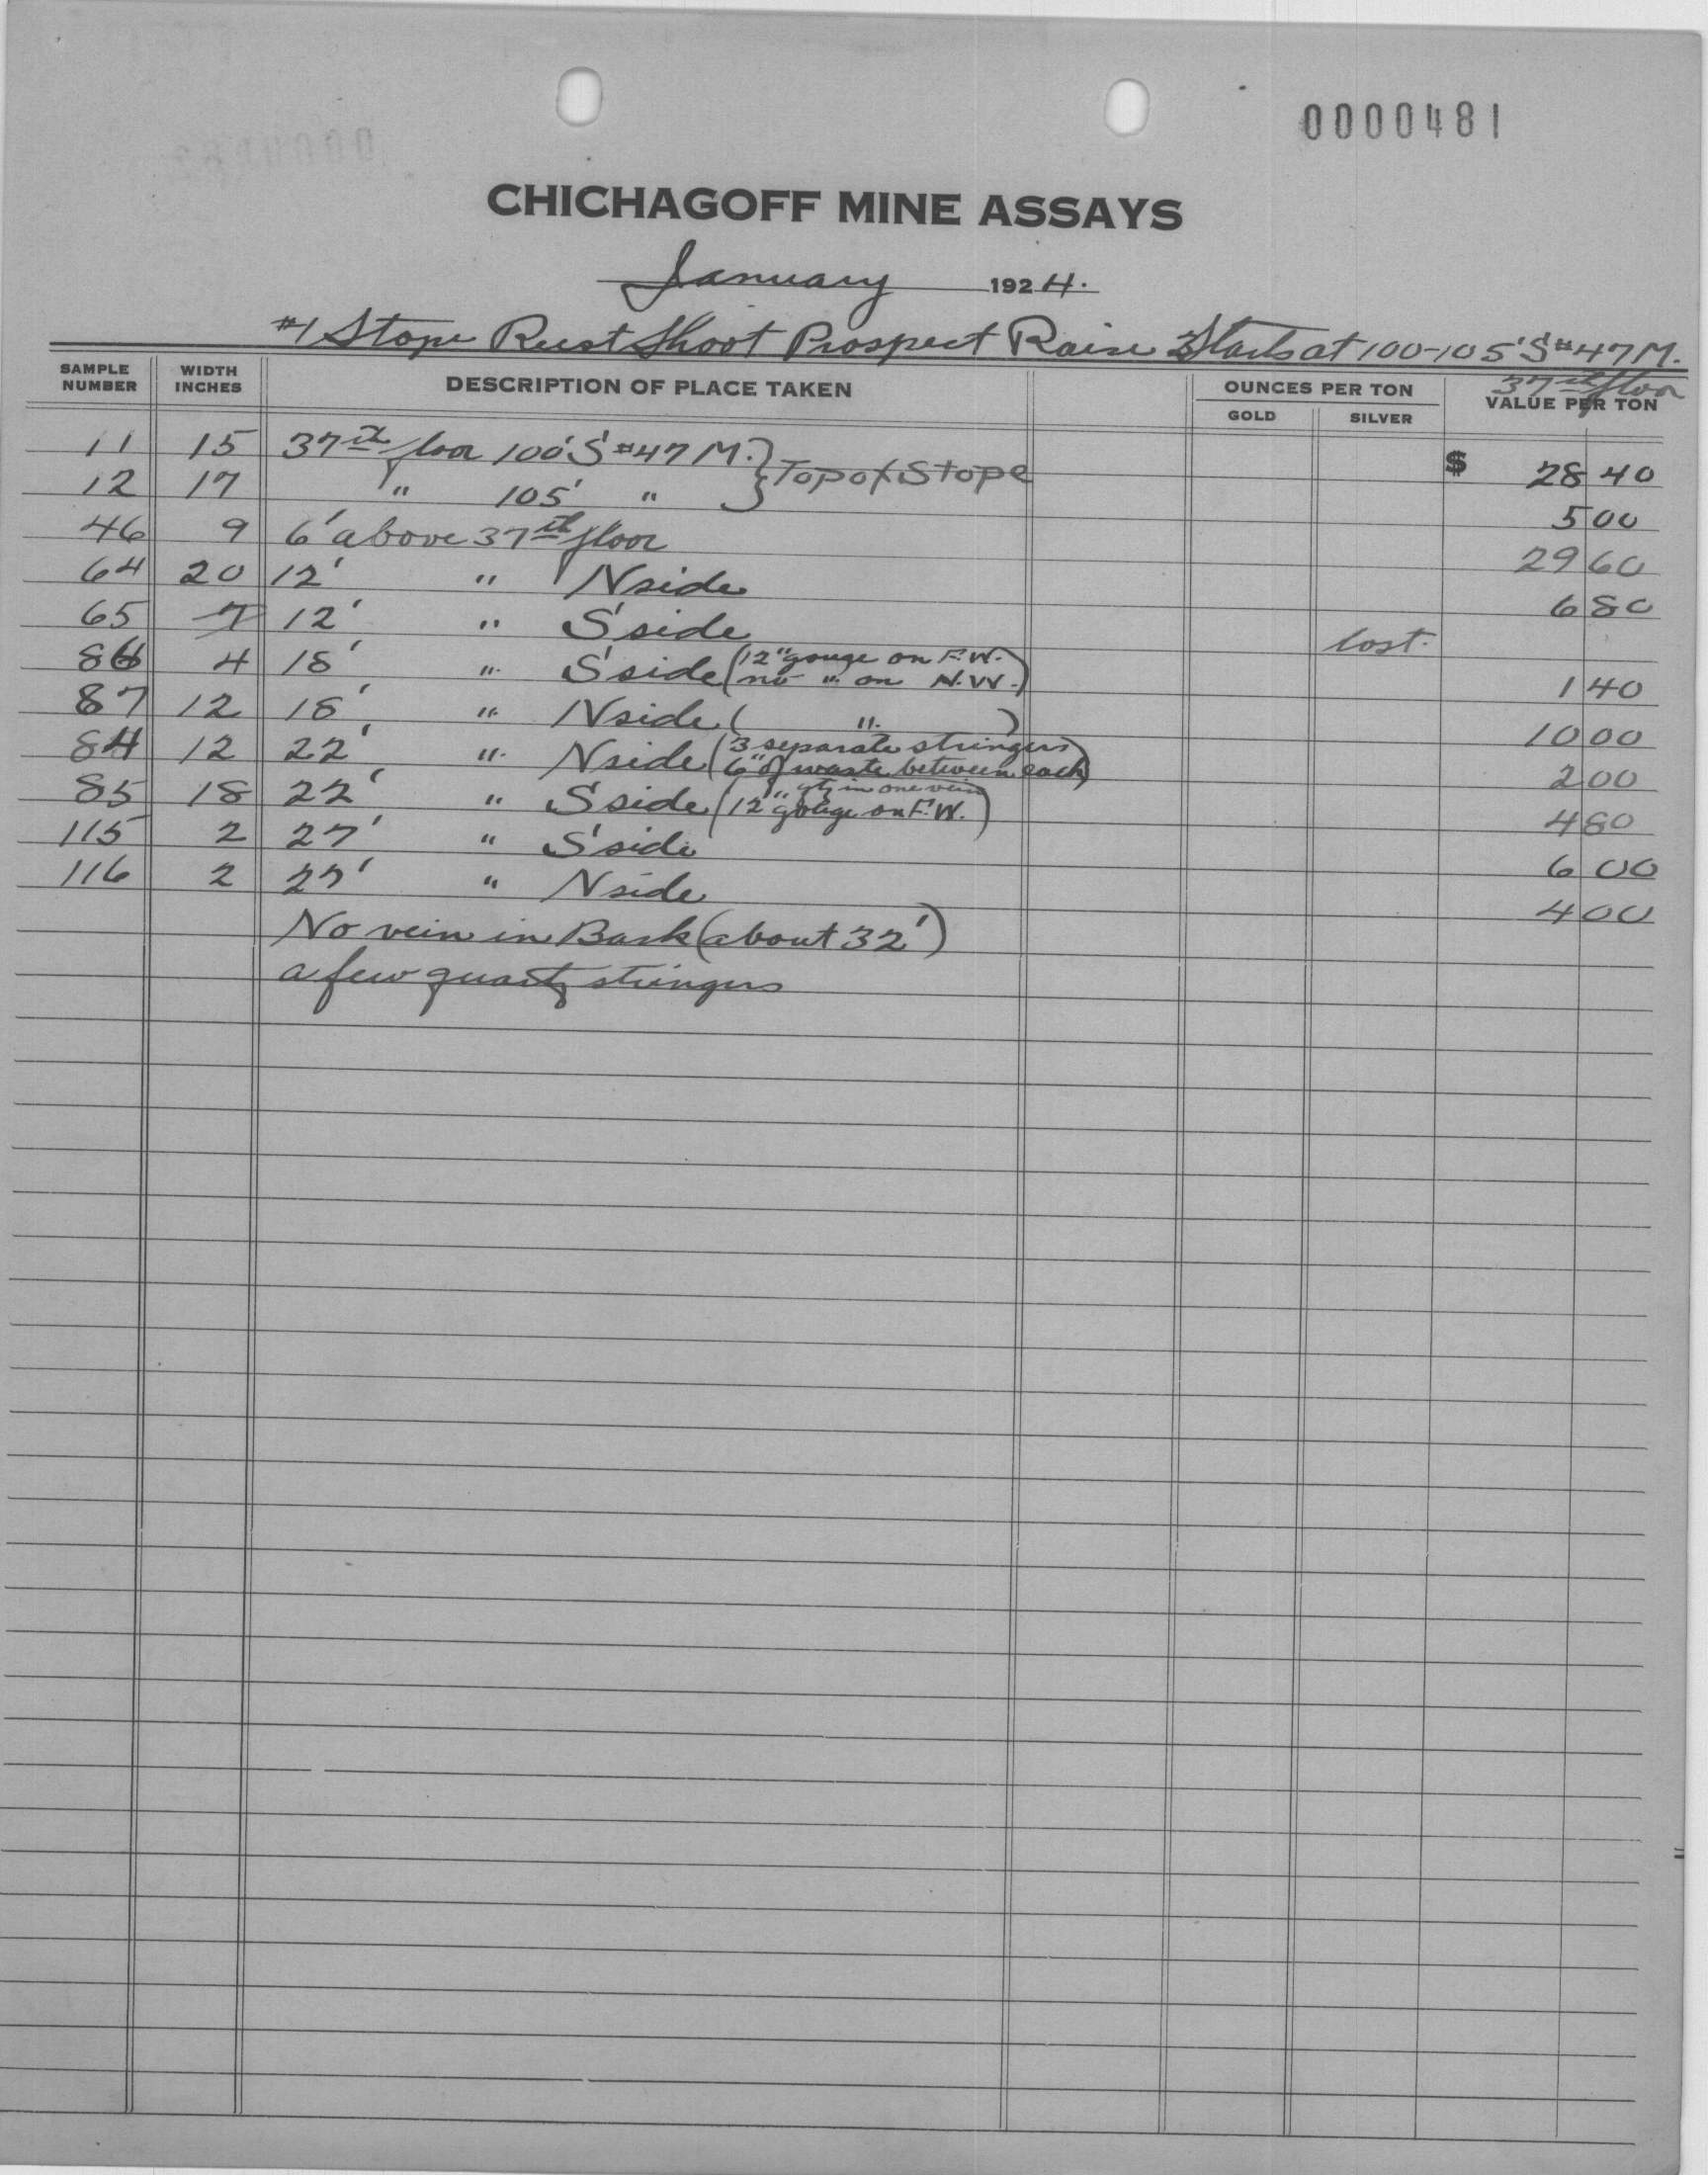 0000481
CHICHAGOFF MINE ASSAYS
January 1924.
#1 Stope Rust Shoot Prospect Raise Starts at 100-105' S #47 M.
37th floor
SAMPLE NUMBER WIDTH INCHES DESCRIPTION OF PLACE TAKEN OUNCES PER TON GOLD SILVER VALUE PER TON
11 15 37th floor 100' S #47 M. } Top of Stope $ 28 40
12 17 " 105' " } 5 00
46 9 6' above 37th floor 29 60
64 20 12' " N side 6 80
65 7 12' " S side lost.
86 4 18' " S side (12" gouge on F.W. no " on N.W.) 1 40
87 12 18' " N side ( " ) 10 00
84 12 22' " N side (3 separate stringers 6" of waste between each) 2 00
85 18 22' " S side (" qtz in one vein 12" gouge on F.W.) 4 80
115 2 27' " S side 6 00
116 2 27' " N side 4 00
No vein in Back (about 32')
a few quartz stringers